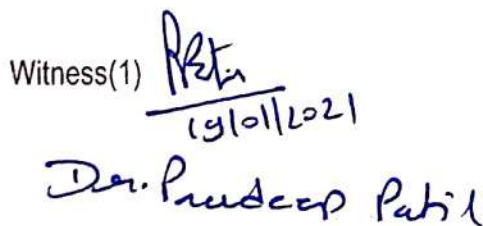 Witness(1) PPatil
19/01/2021
Dr. Pradeep Patil